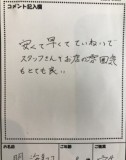 コメント記入欄
安くて早くてていねいで
スタッフさんもお店の雰囲気
もとても良い。